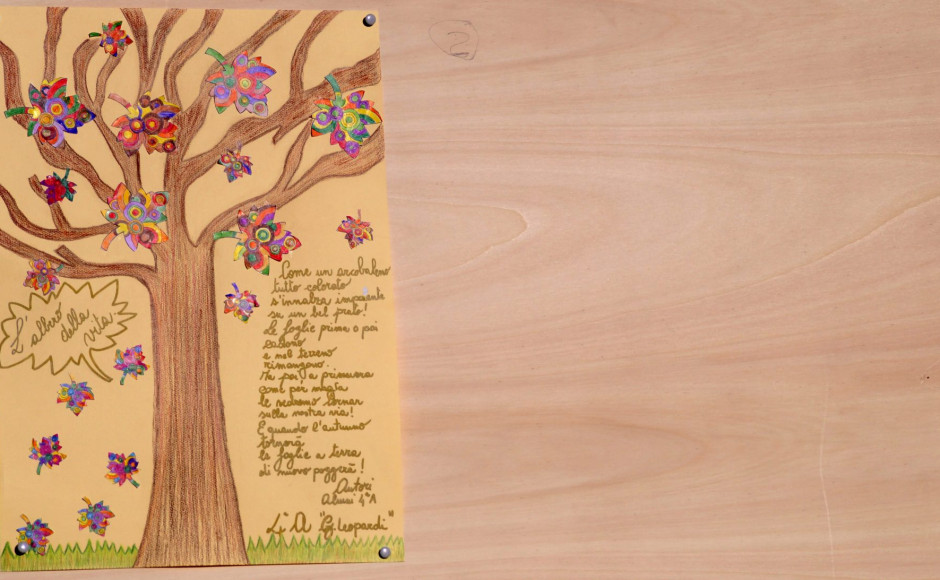 L'albero
della
vita
Come un arcobaleno
tutto colorato
s'innalza imponente
su un bel prato!
Le foglie prima o poi
cadono
e nel terreno
rimangono.
Ma poi, a primavera
come per magia
le vedremo tornar
sulla nostra via!
E quando l'autunno
tornerà
le foglie a terra
di nuovo poggerà!
Autori
Alunni 4ªA
"G. Leopardi"